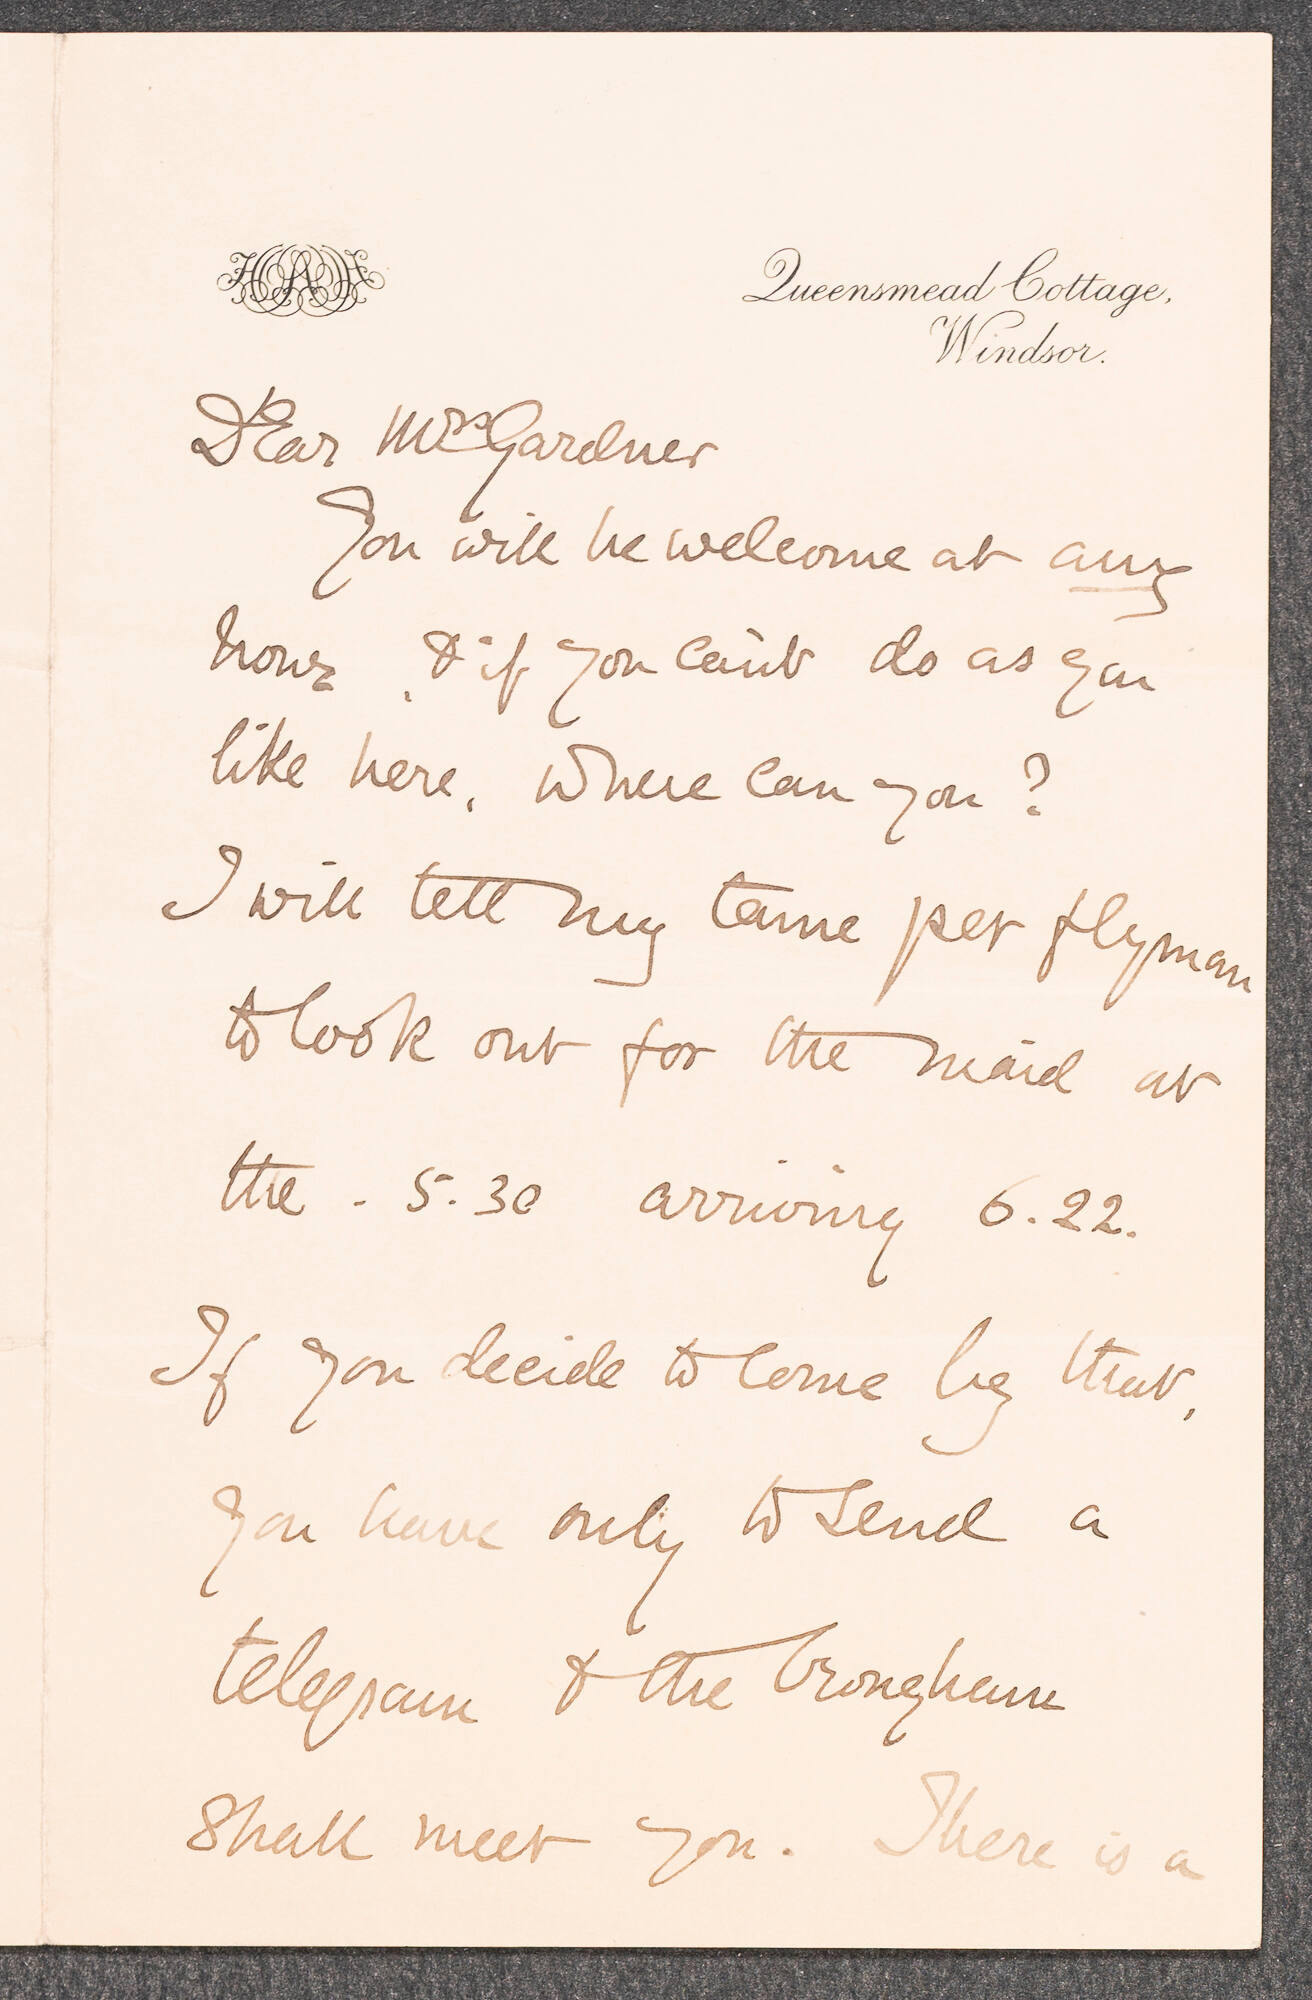 HAH
Queensmead Cottage,
Windsor.
Dear Mrs Gardner
You will be welcome at any
hour, & if you can't do as you
like here, where can you?
I will tell my tame pet flyman
to look out for the maid at
the . 5.30 arriving 6.22.
If you decide to come by that,
you have only to send a
telegram & the brougham
shall meet you. There is a